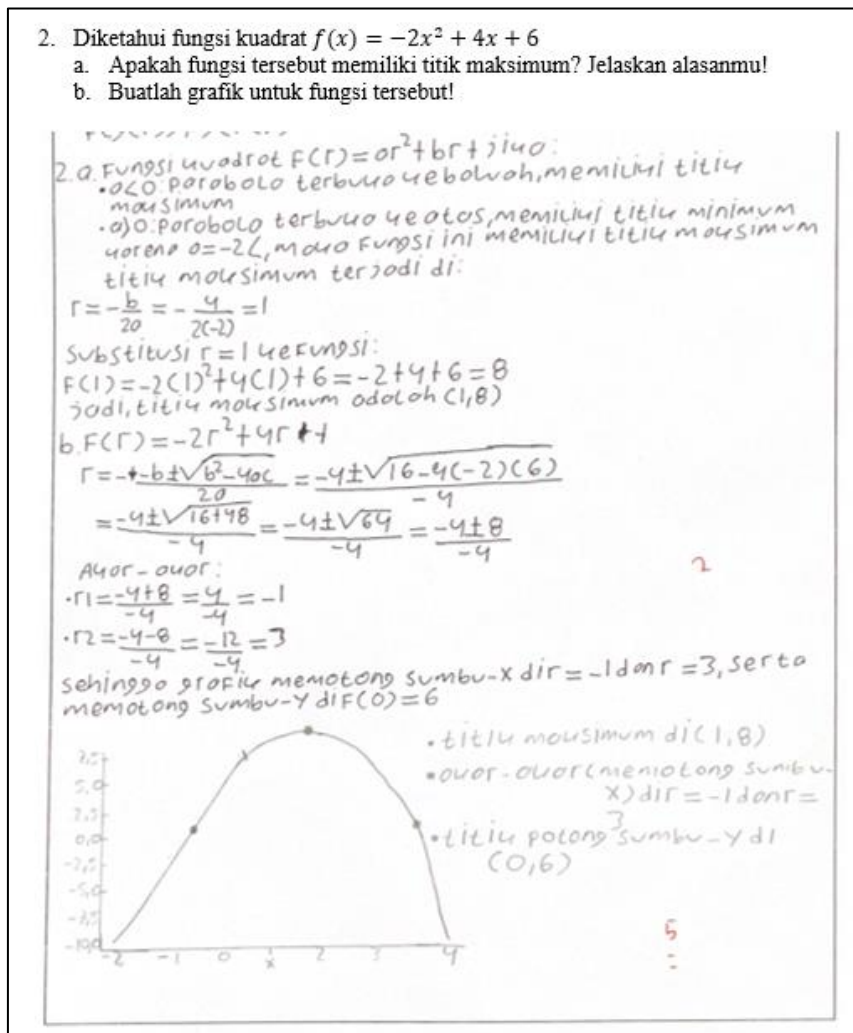 2. Diketahui fungsi kuadrat f(x) = −2x² + 4x + 6
a. Apakah fungsi tersebut memiliki titik maksimum? Jelaskan alasanmu!
b. Buatlah grafik untuk fungsi tersebut!
2.a. Fungsi kuadrat F(x) = ax² + bx + jika:
• a<0: Parabola terbuka kebawah, memiliki titik
maksimum
• a>0: Parabola terbuka ke atas, memiliki titik minimum
karena a = -2<, maka Fungsi ini memiliki titik maksimum
titik maksimum terjadi di:
x = -b/2a = -4/2(-2) = 1
Substitusi x = 1 ke Fungsi:
F(1) = -2(1)² + 4(1) + 6 = -2 + 4 + 6 = 8
jadi, titik maksimum adalah (1,8)
b. F(x) = -2x² + 4x +
x = -b±√b²-4ac / 2a = -4±√16-4(-2)(6) / -4
= -4±√16+48 / -4 = -4±√64 / -4 = -4±8 / -4
Akar-akar:
2
• x1 = -4+8 / -4 = 4 / -4 = -1
• x2 = -4-8 / -4 = -12 / -4 = 3
sehingga grafik memotong sumbu-x di x = -1 dan x = 3, serta
memotong sumbu-y di F(0) = 6
• titik maksimum di (1,8)
• akar-akar (memotong sumbu-
x) di x = -1 dan x =
3
• titik potong sumbu-y di
(0,6)
7,5
5,0
2,5
0,0
-2,5
-5,0
-7,5
-10,0
-2 -1 0 x 2 3 4
5